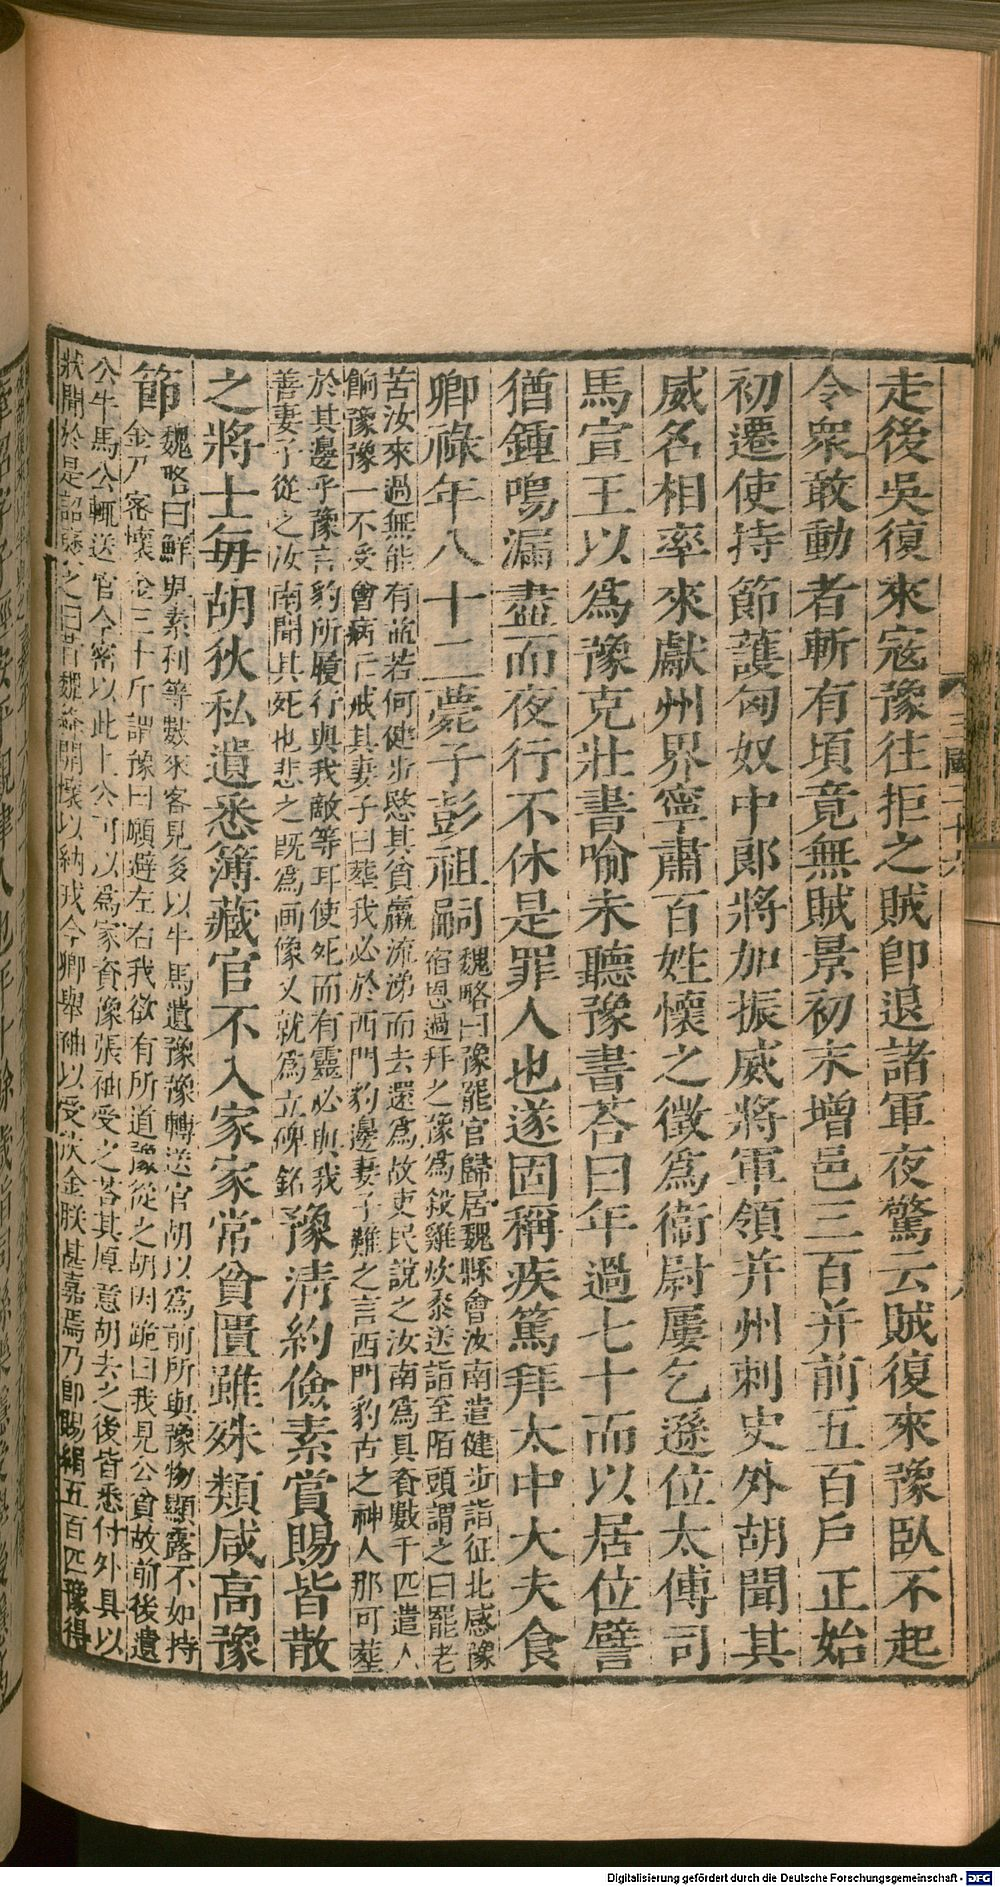 走後吳復來寇豫往拒之賊卽退諸軍夜驚云賊復來豫臥不起
令衆敢動者斬有頃竟無賊景初末增邑三百并前五百戶正始
初遷使持節護匈奴中郎將加振威將軍領并州刺史外胡聞其
威名相率來獻州界寧肅百姓懷之徵爲衞尉屢乞遜位太傅司
馬宣王以爲豫克壯書喻未聽豫書荅曰年過七十而以居位譬
猶鍾鳴漏盡而夜行不休是罪人也遂固稱疾篤拜太中大夫食
卿祿年八十二薨子彭祖嗣
魏略曰豫罷官歸居魏縣會汝南遣健步詣征北感豫
宿恩過拜之豫爲殺雞炊黍送詣至陌頭謂之曰罷老
苦汝來過無能有益若何健步愍其貧羸流涕而去還爲故吏民說之汝南爲具資數千匹遣人
餉豫豫一不受會病亡戒其妻子曰葬我必於西門豹邊妻子難之言西門豹古之神人那可葬
於其邊乎豫言豹所履行與我敵等耳使死而有靈必與我
善妻子從之汝南聞其死也悲之旣爲画像又就爲立碑銘
豫清約儉素賞賜皆散
之將士每胡狄私遺悉簿藏官不入家家常貧匱雖殊類咸高豫
節
魏略曰鮮卑素利等數來客見多以牛馬遺豫豫轉送官胡以爲前所與豫物顯露不如持
金乃密懷金三十斤謂豫曰願避左右我欲有所道豫從之胡因跪曰我見公貧故前後遺
公牛馬公輒送官今密以此上公可以爲家資豫張袖受之荅其厚意胡去之後皆悉付外具以
狀聞於是詔襃之曰昔魏絳開懷以納戎今卿舉袖以受狄金朕甚嘉焉乃卽賜絹五百匹豫得
三國二十六
Digitalisierung gefördert durch die Deutsche Forschungsgemeinschaft - DFG